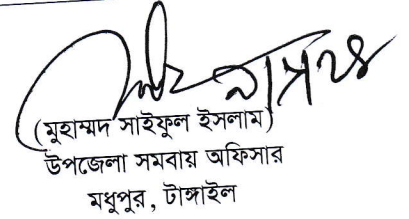 (মুহাম্মদ সাইফুল ইসলাম)
উপজেলা সমবায় অফিসার
মধুপুর, টাঙ্গাইল